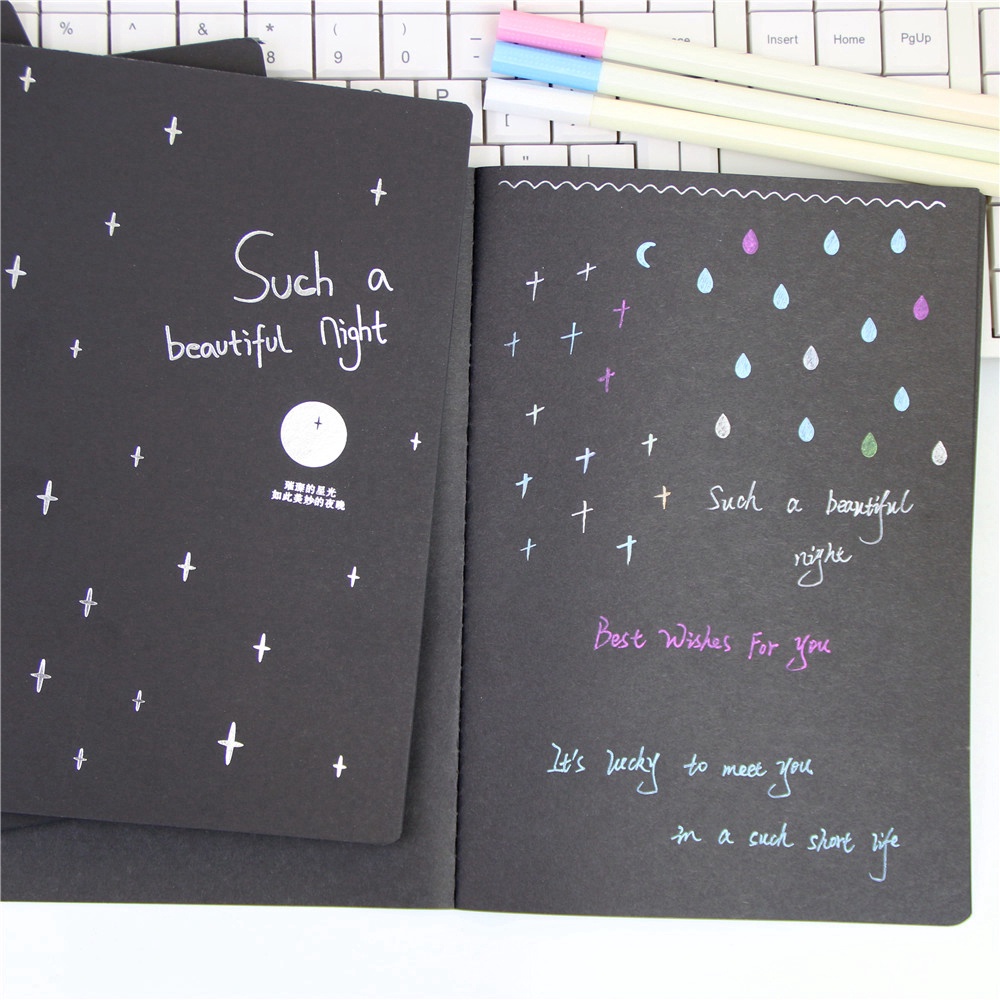 % ^ & * ( ) _
8 9 0 -
Insert Home PgUp
P
[
Such a
beautiful Night
璀璨的星光
如此美妙的夜晚
Such a beautiful
night
Best Wishes For you
It's lucky to meet you
in a such short life